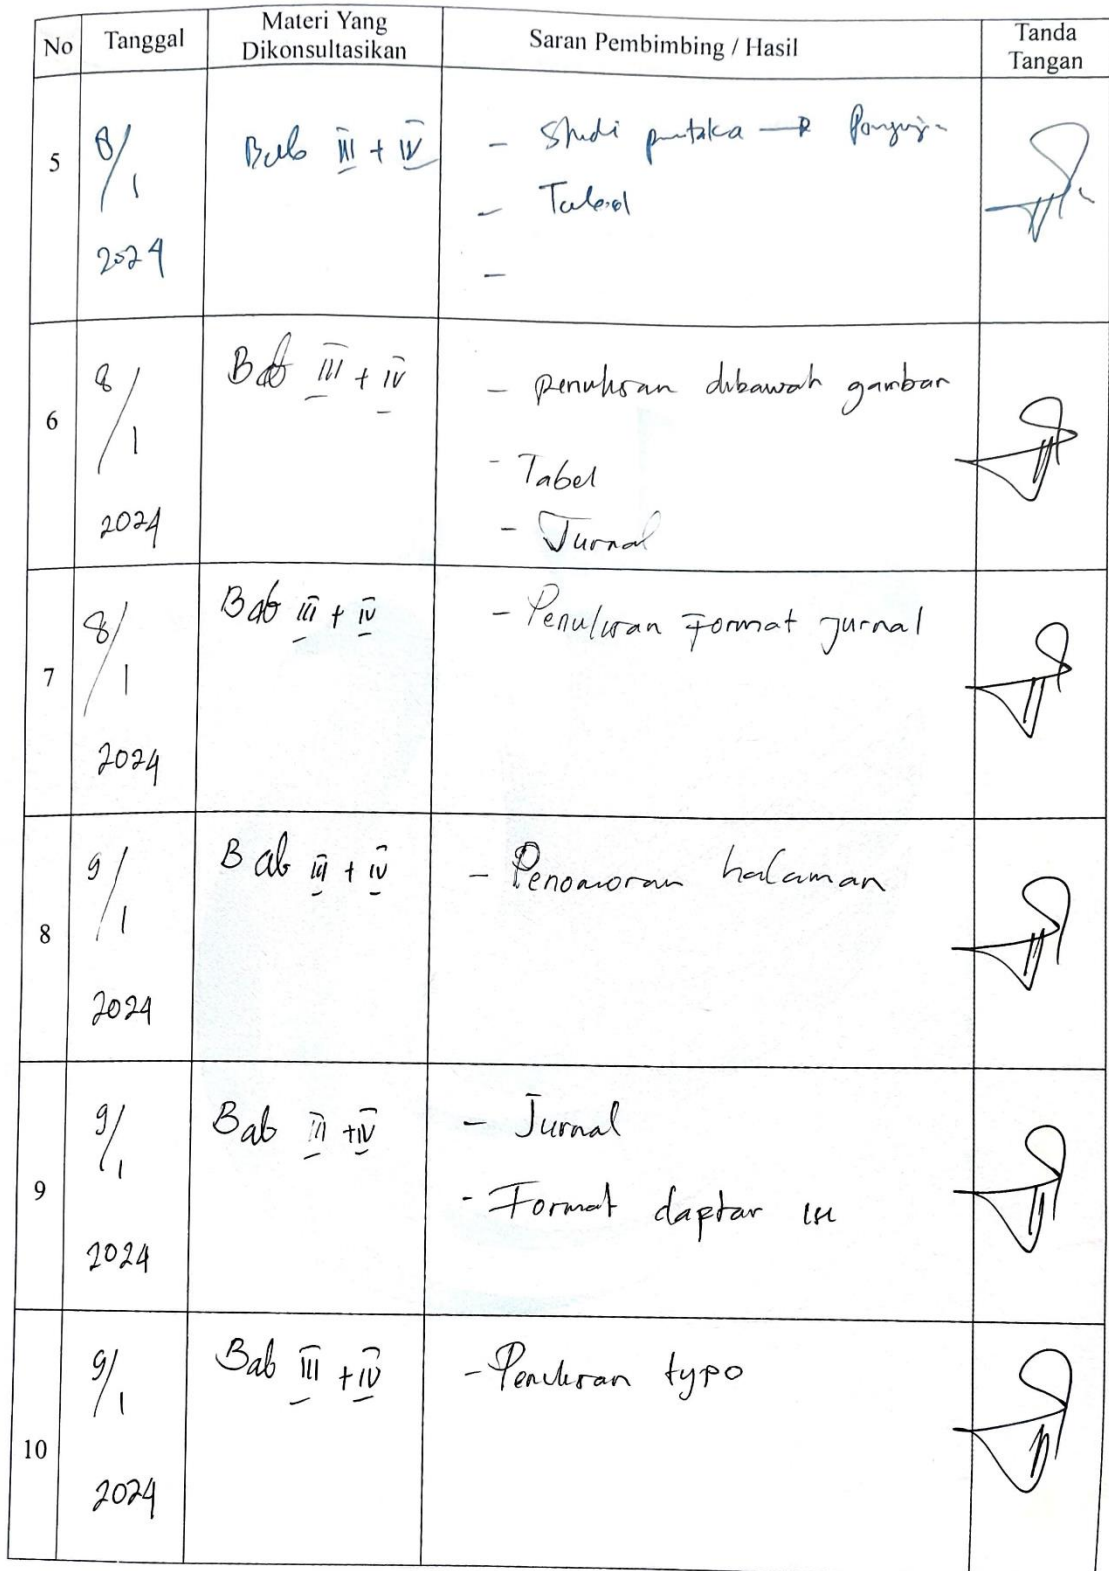 No Tanggal Materi Yang Dikonsultasikan Saran Pembimbing / Hasil Tanda Tangan
5 8/1 2024 Bab III + IV
- Studi pustaka →
- Tabel
-
6 8/1 2024 Bab III + IV
- penulisan dibawah gambar
- Tabel
- Jurnal
7 8/1 2024 Bab III + IV
- Penulisan Format jurnal
8 9/1 2024 Bab III + IV
- Penomoran halaman
9 9/1 2024 Bab III + IV
- Jurnal
- Format daptar isi
10 9/1 2024 Bab III + IV
- Penulisan typo